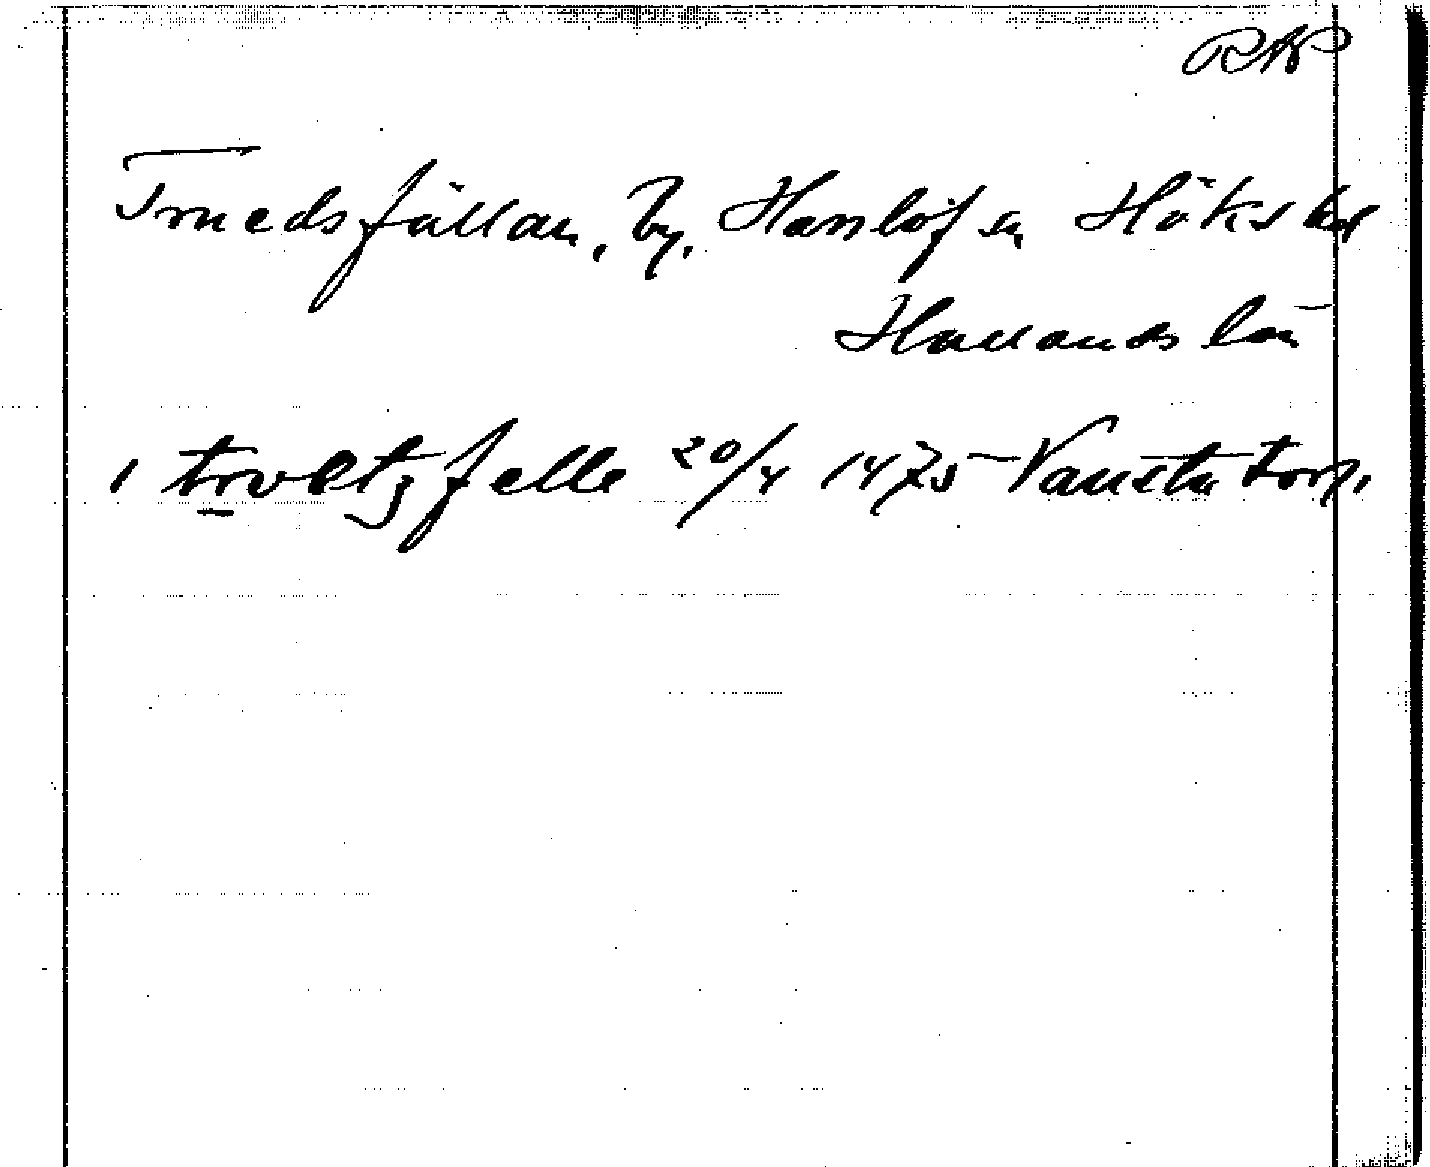 RAP
Truedsfällan, by, Hasslöf sn Höks hd
Hallands län
i trvltzfelle 20/4 1475 Vanstatorp.